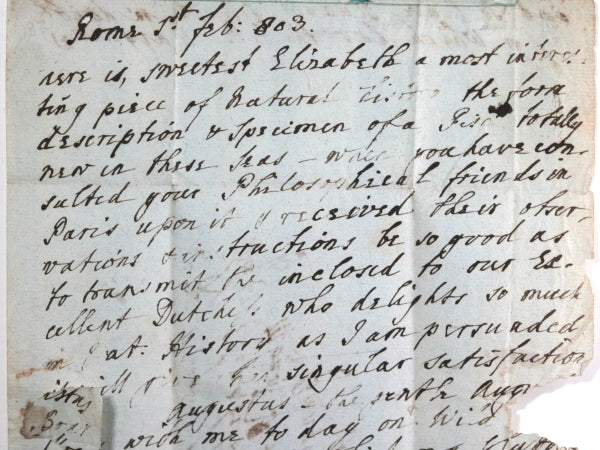 Rome 1st feb: 803.
Here is, sweetest Elizabeth a most interes-
ting piece of Natural History the form
description & Specimen of a totally
new in these Seas - when you have con-
sulted your Philosophical friends in
Paris upon it & received their obser-
vations & instructions be so good as
to transmit the inclosed to our Ex-
cellent Dutchess who delights so much
in Nat: History as I am persuaded
it will give her singular satisfaction
Augustus - the tenth
with me to day on